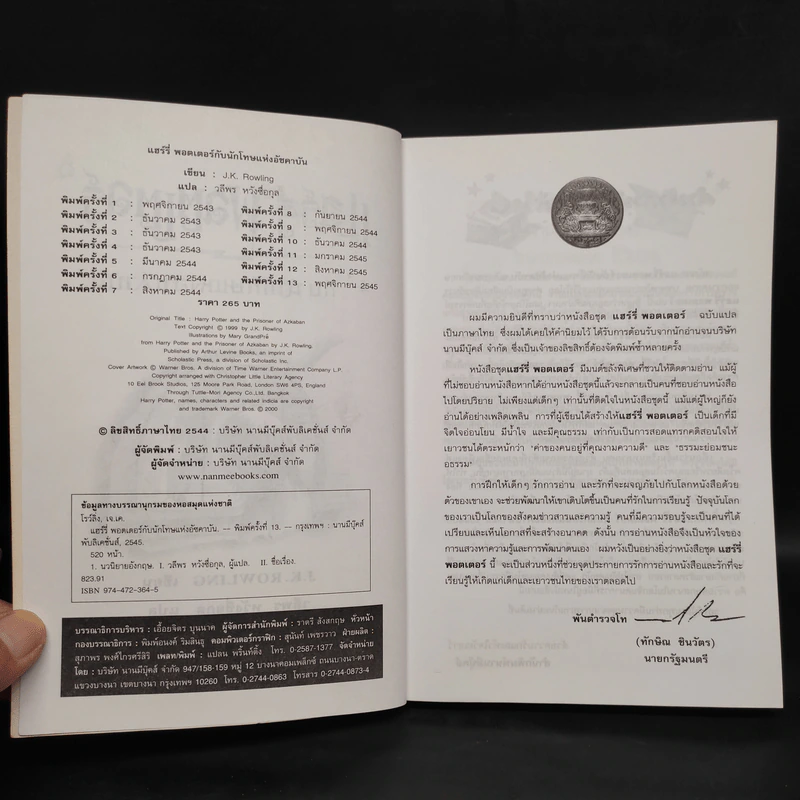 แฮร์รี่ พอตเตอร์กับนักโทษแห่งอัซคาบัน
เขียน : J.K. Rowling
แปล : วลีพร หวังซื่อกุล
พิมพ์ครั้งที่ 1 : พฤศจิกายน 2543
พิมพ์ครั้งที่ 2 : ธันวาคม 2543
พิมพ์ครั้งที่ 3 : ธันวาคม 2543
พิมพ์ครั้งที่ 4 : ธันวาคม 2543
พิมพ์ครั้งที่ 5 : มีนาคม 2544
พิมพ์ครั้งที่ 6 : กรกฎาคม 2544
พิมพ์ครั้งที่ 7 : สิงหาคม 2544
พิมพ์ครั้งที่ 8 : กันยายน 2544
พิมพ์ครั้งที่ 9 : พฤศจิกายน 2544
พิมพ์ครั้งที่ 10 : ธันวาคม 2544
พิมพ์ครั้งที่ 11 : มกราคม 2545
พิมพ์ครั้งที่ 12 : สิงหาคม 2545
พิมพ์ครั้งที่ 13 : พฤศจิกายน 2545
ราคา 265 บาท
Original Title : Harry Potter and the Prisoner of Azkaban
Text Copyright © 1999 by J.K. Rowling
Illustrations by Mary GrandPré
from Harry Potter and the Prisoner of Azkaban by J.K. Rowling.
Published by Arthur Levine Books, an imprint of
Scholastic Press, a division of Scholastic Inc.
Cover Artwork © Warner Bros. A Division of Time Warner Entertainment Company L.P.
Copyright arranged with Christopher Little Literary Agency
10 Eel Brook Studios, 125 Moore Park Road, London SW6 4PS, England
Through Tuttle-Mori Agency Co.,Ltd, Bangkok
Harry Potter, names, characters and related indicia are copyright
and trademark Warner Bros. © 2000
© ลิขสิทธิ์ภาษาไทย 2544 : บริษัท นานมีบุ๊คส์พับลิเคชั่นส์ จำกัด
ผู้จัดพิมพ์ : บริษัท นานมีบุ๊คส์พับลิเคชั่นส์ จำกัด
ผู้จัดจำหน่าย : บริษัท นานมีบุ๊คส์ จำกัด
www.nanmeebooks.com
ข้อมูลทางบรรณานุกรมของหอสมุดแห่งชาติ
โรว์ลิ่ง, เจ.เค.
แฮร์รี่ พอตเตอร์กับนักโทษแห่งอัซคาบัน. -- พิมพ์ครั้งที่ 13. -- กรุงเทพฯ : นานมีบุ๊คส์
พับลิเคชั่นส์, 2545.
520 หน้า.
1. นวนิยายอังกฤษ. I. วลีพร หวังซื่อกุล, ผู้แปล. II. ชื่อเรื่อง.
823.91
ISBN 974-472-364-5
บรรณาธิการบริหาร : เอื้อยจิตร บุนนาค ผู้จัดการสำนักพิมพ์ : ราตรี สังสกฤษ หัวหน้า
กองบรรณาธิการ : พิมพ์อนงค์ ริมสินธุ คอมพิวเตอร์กราฟิก : สุนันท์ เพชรวาว ฝ่ายผลิต :
สุภาพร พงศ์ไกรศรีสิริ เพลท/พิมพ์ : แปลน พริ้นท์ติ้ง โทร. 0-2587-1377 จัดจำหน่าย
โดย : บริษัท นานมีบุ๊คส์ จำกัด 947/158-159 หมู่ 12 บางนาคอมเพล็กซ์ ถนนบางนา-ตราด
แขวงบางนา เขตบางนา กรุงเทพฯ 10260 โทร. 0-2744-0863-7 โทรสาร 0-2744-0873-4
ผมมีความยินดีที่ทราบว่าหนังสือชุด แฮร์รี่ พอตเตอร์ ฉบับแปล
เป็นภาษาไทย ซึ่งผมได้เคยให้คำนิยมไว้ ได้รับการต้อนรับจากนักอ่านจนบริษัท
นานมีบุ๊คส์ จำกัด ซึ่งเป็นเจ้าของลิขสิทธิ์ต้องจัดพิมพ์ซ้ำหลายครั้ง
หนังสือชุดแฮร์รี่ พอตเตอร์ มีมนต์ขลังพิเศษที่ชวนให้ติดตามอ่าน แม้ผู้
ที่ไม่ชอบอ่านหนังสือหากได้อ่านหนังสือชุดนี้แล้วจะกลายเป็นคนที่ชอบอ่านหนังสือ
ไปโดยปริยาย ไม่เพียงแต่เด็กๆ เท่านั้นที่ติดใจในหนังสือชุดนี้ แม้แต่ผู้ใหญ่ก็ยัง
อ่านได้อย่างเพลิดเพลิน การที่ผู้เขียนได้สร้างให้แฮร์รี่ พอตเตอร์ เป็นเด็กที่มี
จิตใจอ่อนโยน มีน้ำใจ และมีคุณธรรม เท่ากับเป็นการสอดแทรกคติสอนใจให้
เยาวชนได้ตระหนักว่า "ค่าของคนอยู่ที่คุณงามความดี" และ "ธรรมะย่อมชนะ
อธรรม"
การฝึกให้เด็กๆ รักการอ่าน และรักที่จะผจญภัยไปกับโลกหนังสือด้วย
ตัวของเขาเอง จะช่วยพัฒนาให้เขาเติบโตขึ้นเป็นคนที่รักในการเรียนรู้ ปัจจุบันโลก
ของเราเป็นโลกของสังคมข่าวสารและความรู้ คนที่มีความรอบรู้จะเป็นคนที่ได้
เปรียบและเห็นโอกาสที่จะสร้างอนาคต ดังนั้น การอ่านหนังสือจึงเป็นหัวใจของ
การแสวงหาความรู้และการพัฒนาตนเอง ผมหวังเป็นอย่างยิ่งว่าหนังสือชุด แฮร์รี่
พอตเตอร์ นี้ จะเป็นส่วนหนึ่งที่ช่วยจุดประกายการรักการอ่านหนังสือและรักที่จะ
เรียนรู้ให้เกิดแก่เด็กและเยาวชนไทยของเราตลอดไป
พันตำรวจโท
(ทักษิณ ชินวัตร)
นายกรัฐมนตรี